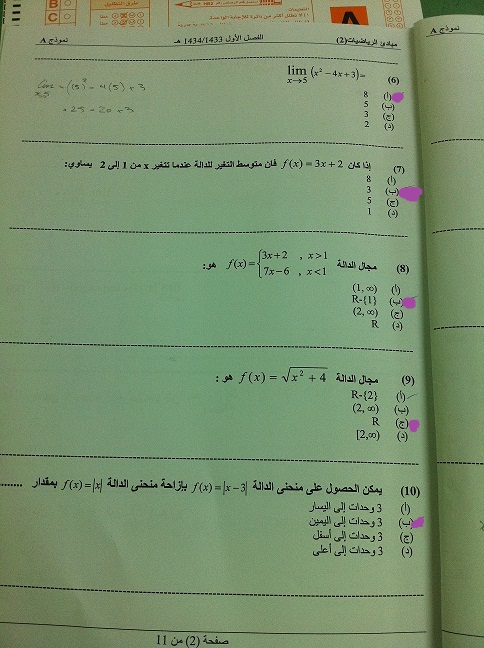 طرق التظليل
B
C
A
نموذج A
مبادئ الرياضيات(2)
الفصل الأول 1434/1433 هـ
نموذج A
(6) lim x→5 (x² − 4x + 3) =
= (5)² − 4(5) + 3
= 25 − 20 + 3
(أ) 8
(ب) 5
(ج) 3
(د) 2
(7) إذا كان f(x) = 3x + 2 فان متوسط التغير للدالة عندما تتغير x من 1 إلى 2 يساوي:
(أ) 8
(ب) 3
(ج) 5
(د) 1
(8) مجال الدالة f(x) = { 3x + 2 , x > 1
7x − 6 , x < 1 هو:
(أ) (1, ∞)
(ب) R-{1}
(ج) (2, ∞)
(د) R
(9) مجال الدالة f(x) = √(x² + 4) هو :
(أ) R-{2}
(ب) (2, ∞)
(ج) R
(د) [2,∞)
(10) يمكن الحصول على منحنى الدالة f(x) = |x − 3| بإزاحة منحنى الدالة f(x) = |x| بمقدار ........
(أ) 3 وحدات إلى اليسار
(ب) 3 وحدات إلى اليمين
(ج) 3 وحدات إلى أسفل
(د) 3 وحدات إلى أعلى
صفحة (2) من 11